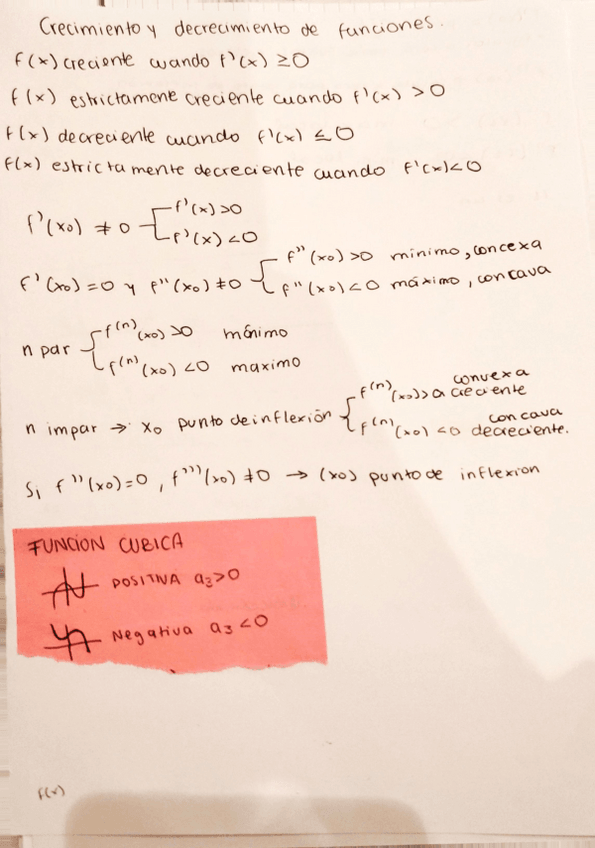 Crecimiento y decrecimiento de funciones.
f(x) creciente cuando f'(x) ≥0
f(x) estrictamente creciente cuando f'(x) >0
f(x) decreciente cuando f'(x) ≤0
f(x) estrictamente decreciente cuando f'(x)<0
f'(x0) ≠0 { f'(x)>0
f'(x)<0
f'(x0)=0 y f''(x0)≠0 { f''(x0)>0 minimo, concexa
f''(x0)<0 máximo, concava
n par { f(n)(x0)>0 mínimo
f(n)(x0)<0 maximo
n impar → x0 punto de inflexión { f(n)(x0)>0 convexa creciente
f(n)(x0)<0 concava decreciente.
Si f''(x0)=0, f'''(x0)≠0 → (x0) punto de inflexion
FUNCION CUBICA
POSITIVA a3>0
Negativa a3<0
f(x)